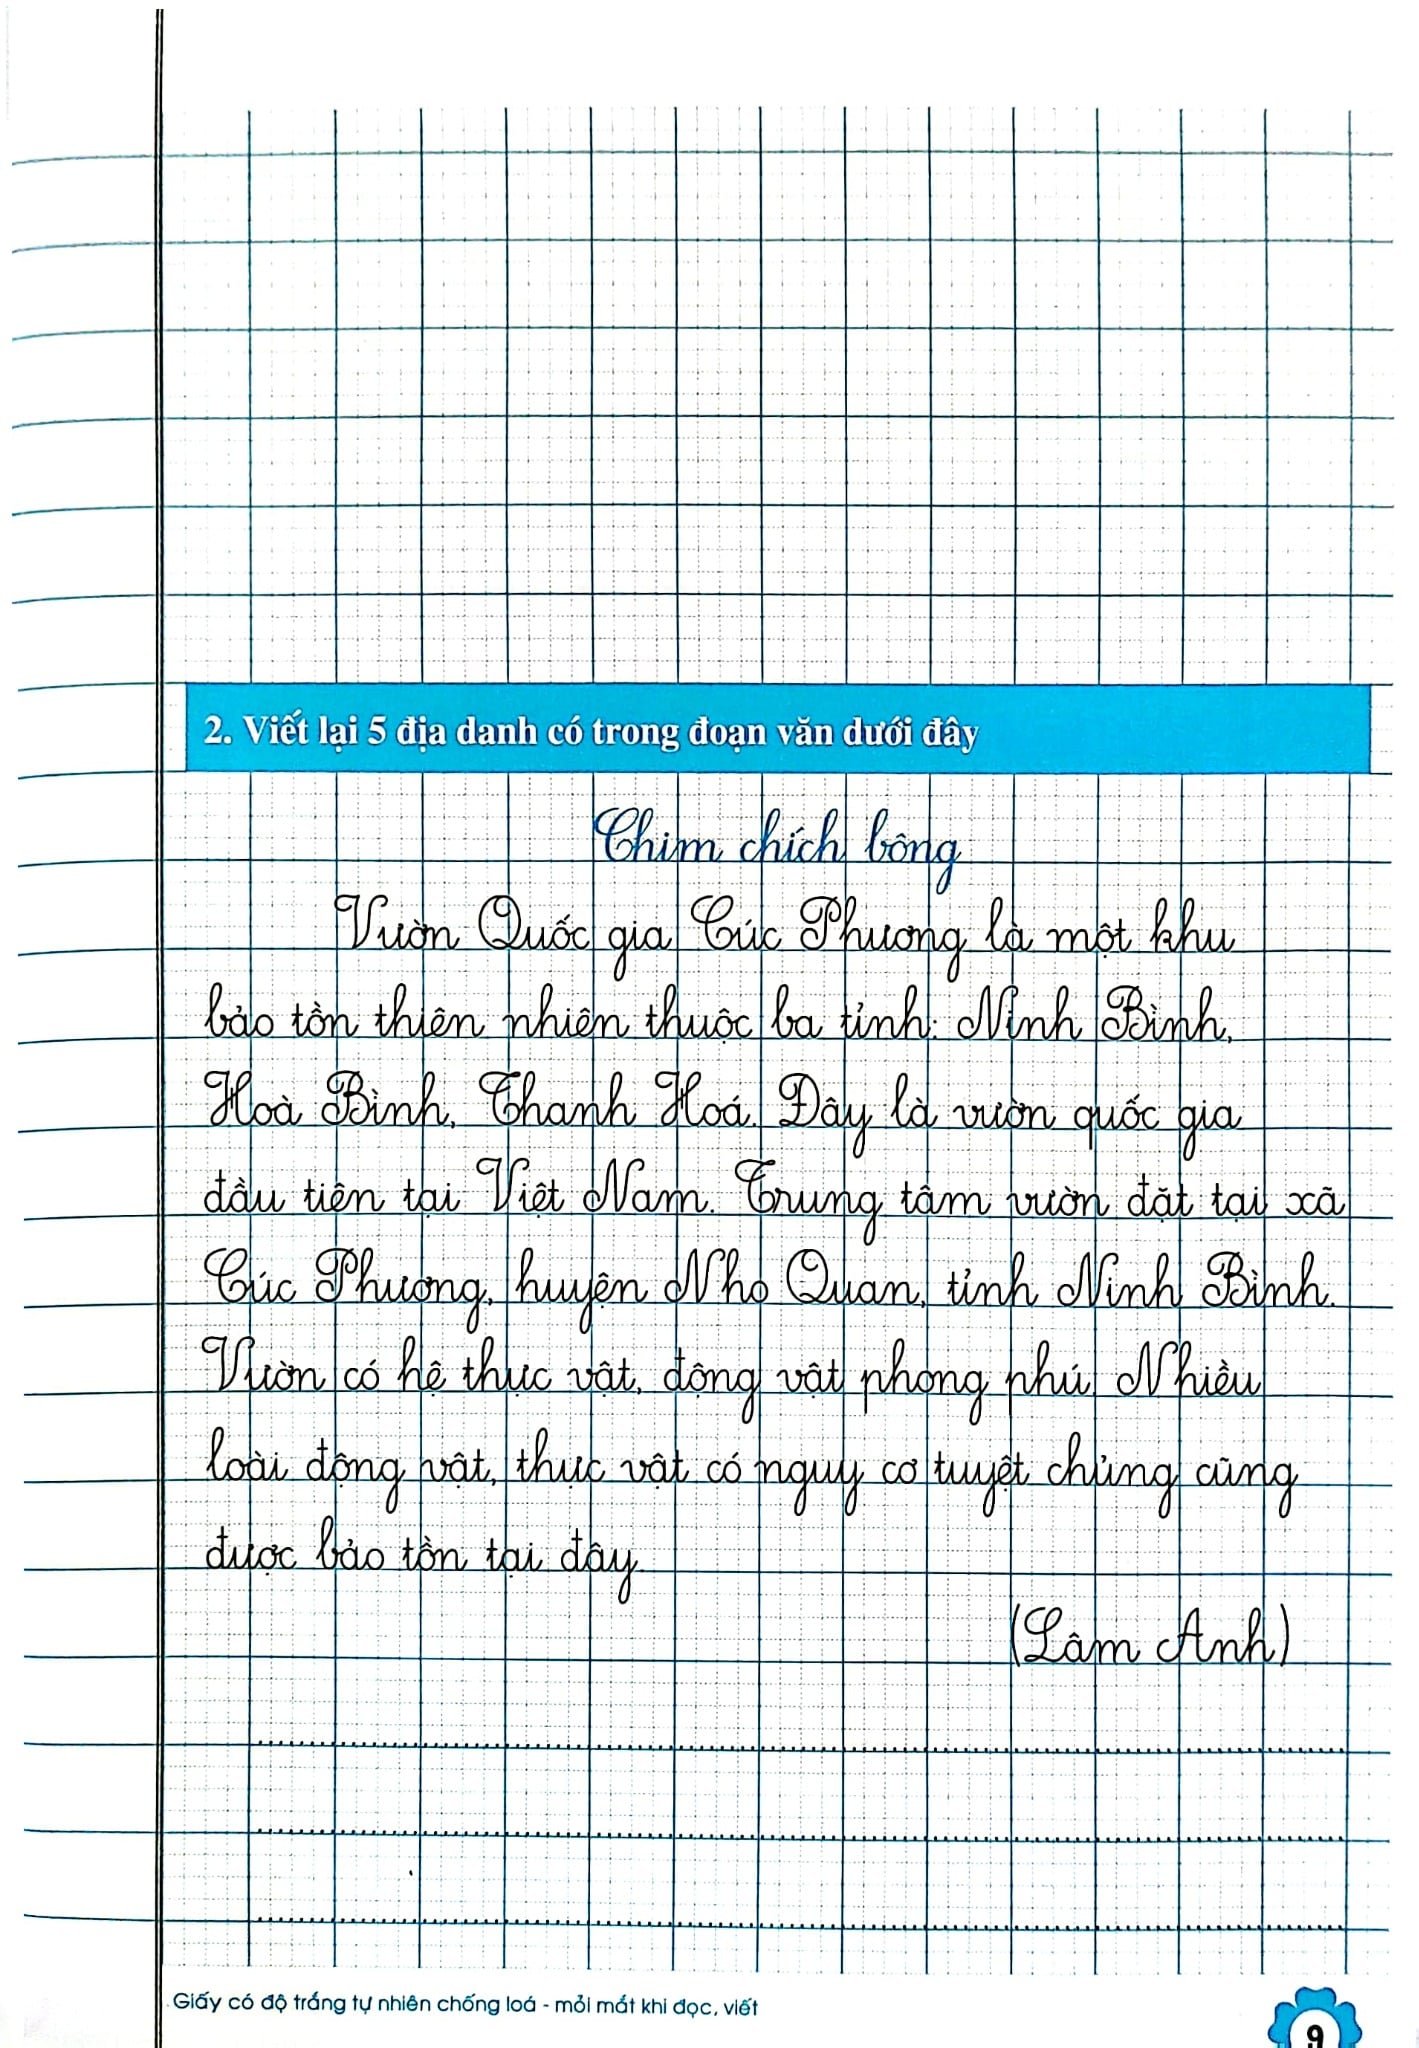 2. Viết lại 5 địa danh có trong đoạn văn dưới đây
Chim chích bông
Vườn Quốc gia Cúc Phương là một khu
bảo tồn thiên nhiên thuộc ba tỉnh: Ninh Bình,
Hoà Bình, Thanh Hoá. Đây là vườn quốc gia
đầu tiên tại Việt Nam. Trung tâm vườn đặt tại xã
Cúc Phương, huyện Nho Quan, tỉnh Ninh Bình.
Vườn có hệ thực vật, động vật phong phú. Nhiều
loài động vật, thực vật có nguy cơ tuyệt chủng cũng
được bảo tồn tại đây.
(Lâm Anh)
Giấy có độ trắng tự nhiên chống loá - mỏi mắt khi đọc, viết
9